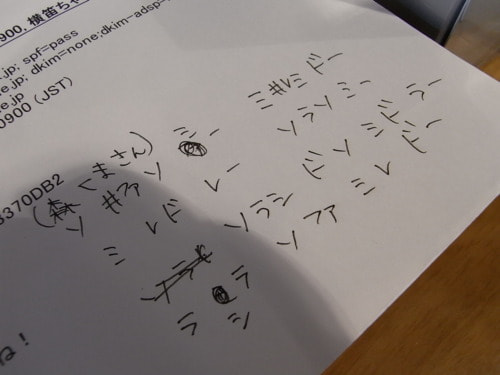 900, 横笛ちゃ
e.jp; spf=pass
e.jp; dkim=none;dkim-adsp=
e.jp
0900 (JST)
3370DB2
(くまさん)
ソ #ファ ソ ミー ミ#レミドー
ミ レド レー ソラソミー
ソラシ ドソ ミ ラー
ラ ソファ ミレ ドー
ラ シ
ね！